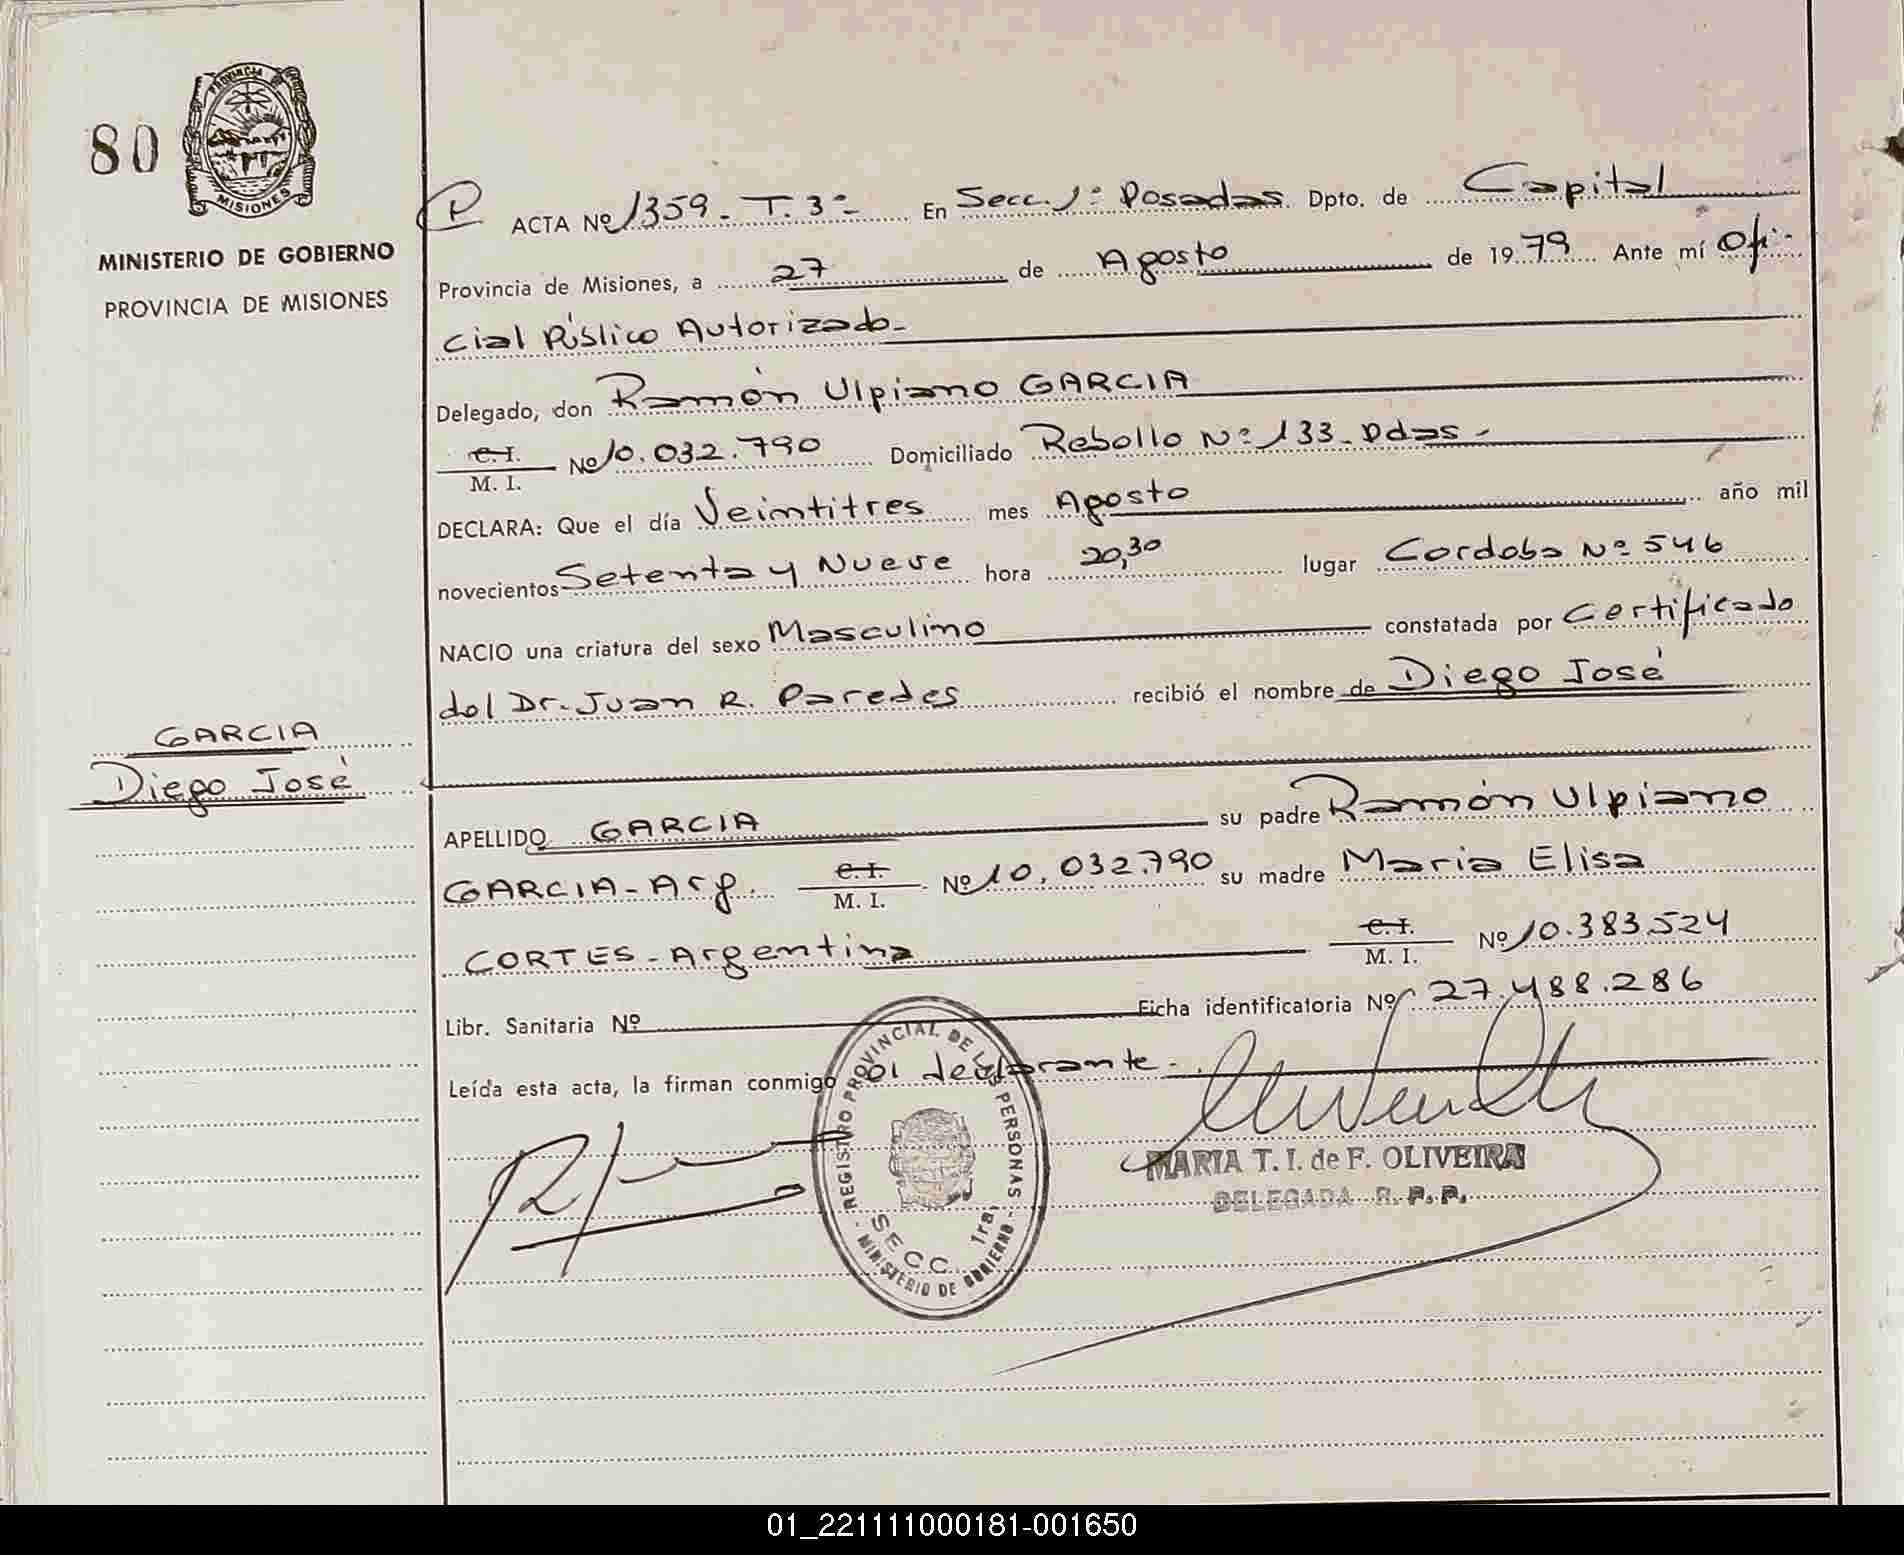 80
PROVINCIA DE
MISIONES
MINISTERIO DE GOBIERNO
PROVINCIA DE MISIONES
P ACTA Nº 1359. T. 3º - En Secc. 1º Posadas Dpto. de Capital
Provincia de Misiones, a 27 de Agosto de 1979 Ante mí Ofi-
cial Público Autorizado -
Delegado, don Ramón Ulpiano GARCIA
C. I.
M. I. Nº 10.032.790 Domiciliado Rebollo Nº 133 - Pdas -
DECLARA: Que el día Veintitres mes Agosto año mil
novecientos Setenta y Nueve hora 20,30 lugar Cordoba Nº 546
NACIO una criatura del sexo Masculino constatada por Certificado
del Dr. Juan R. Paredes recibió el nombre de Diego José
GARCIA
Diego José
APELLIDO GARCIA su padre Ramón Ulpiano
GARCIA - Arg. C. I.
M. I. Nº 10.032.790 su madre Maria Elisa
CORTES - Argentina C. I.
M. I. Nº 10.383.524
Libr. Sanitaria Nº Ficha identificatoria Nº 27.488.286
Leída esta acta, la firman conmigo el declarante -
REGISTRO PROVINCIAL DE LAS PERSONAS
SECC. 1ra.
- MINISTERIO DE GOBIERNO -
MARIA T. I. de F. OLIVEIRA
DELEGADA R. P. P.
01_221111000181-001650